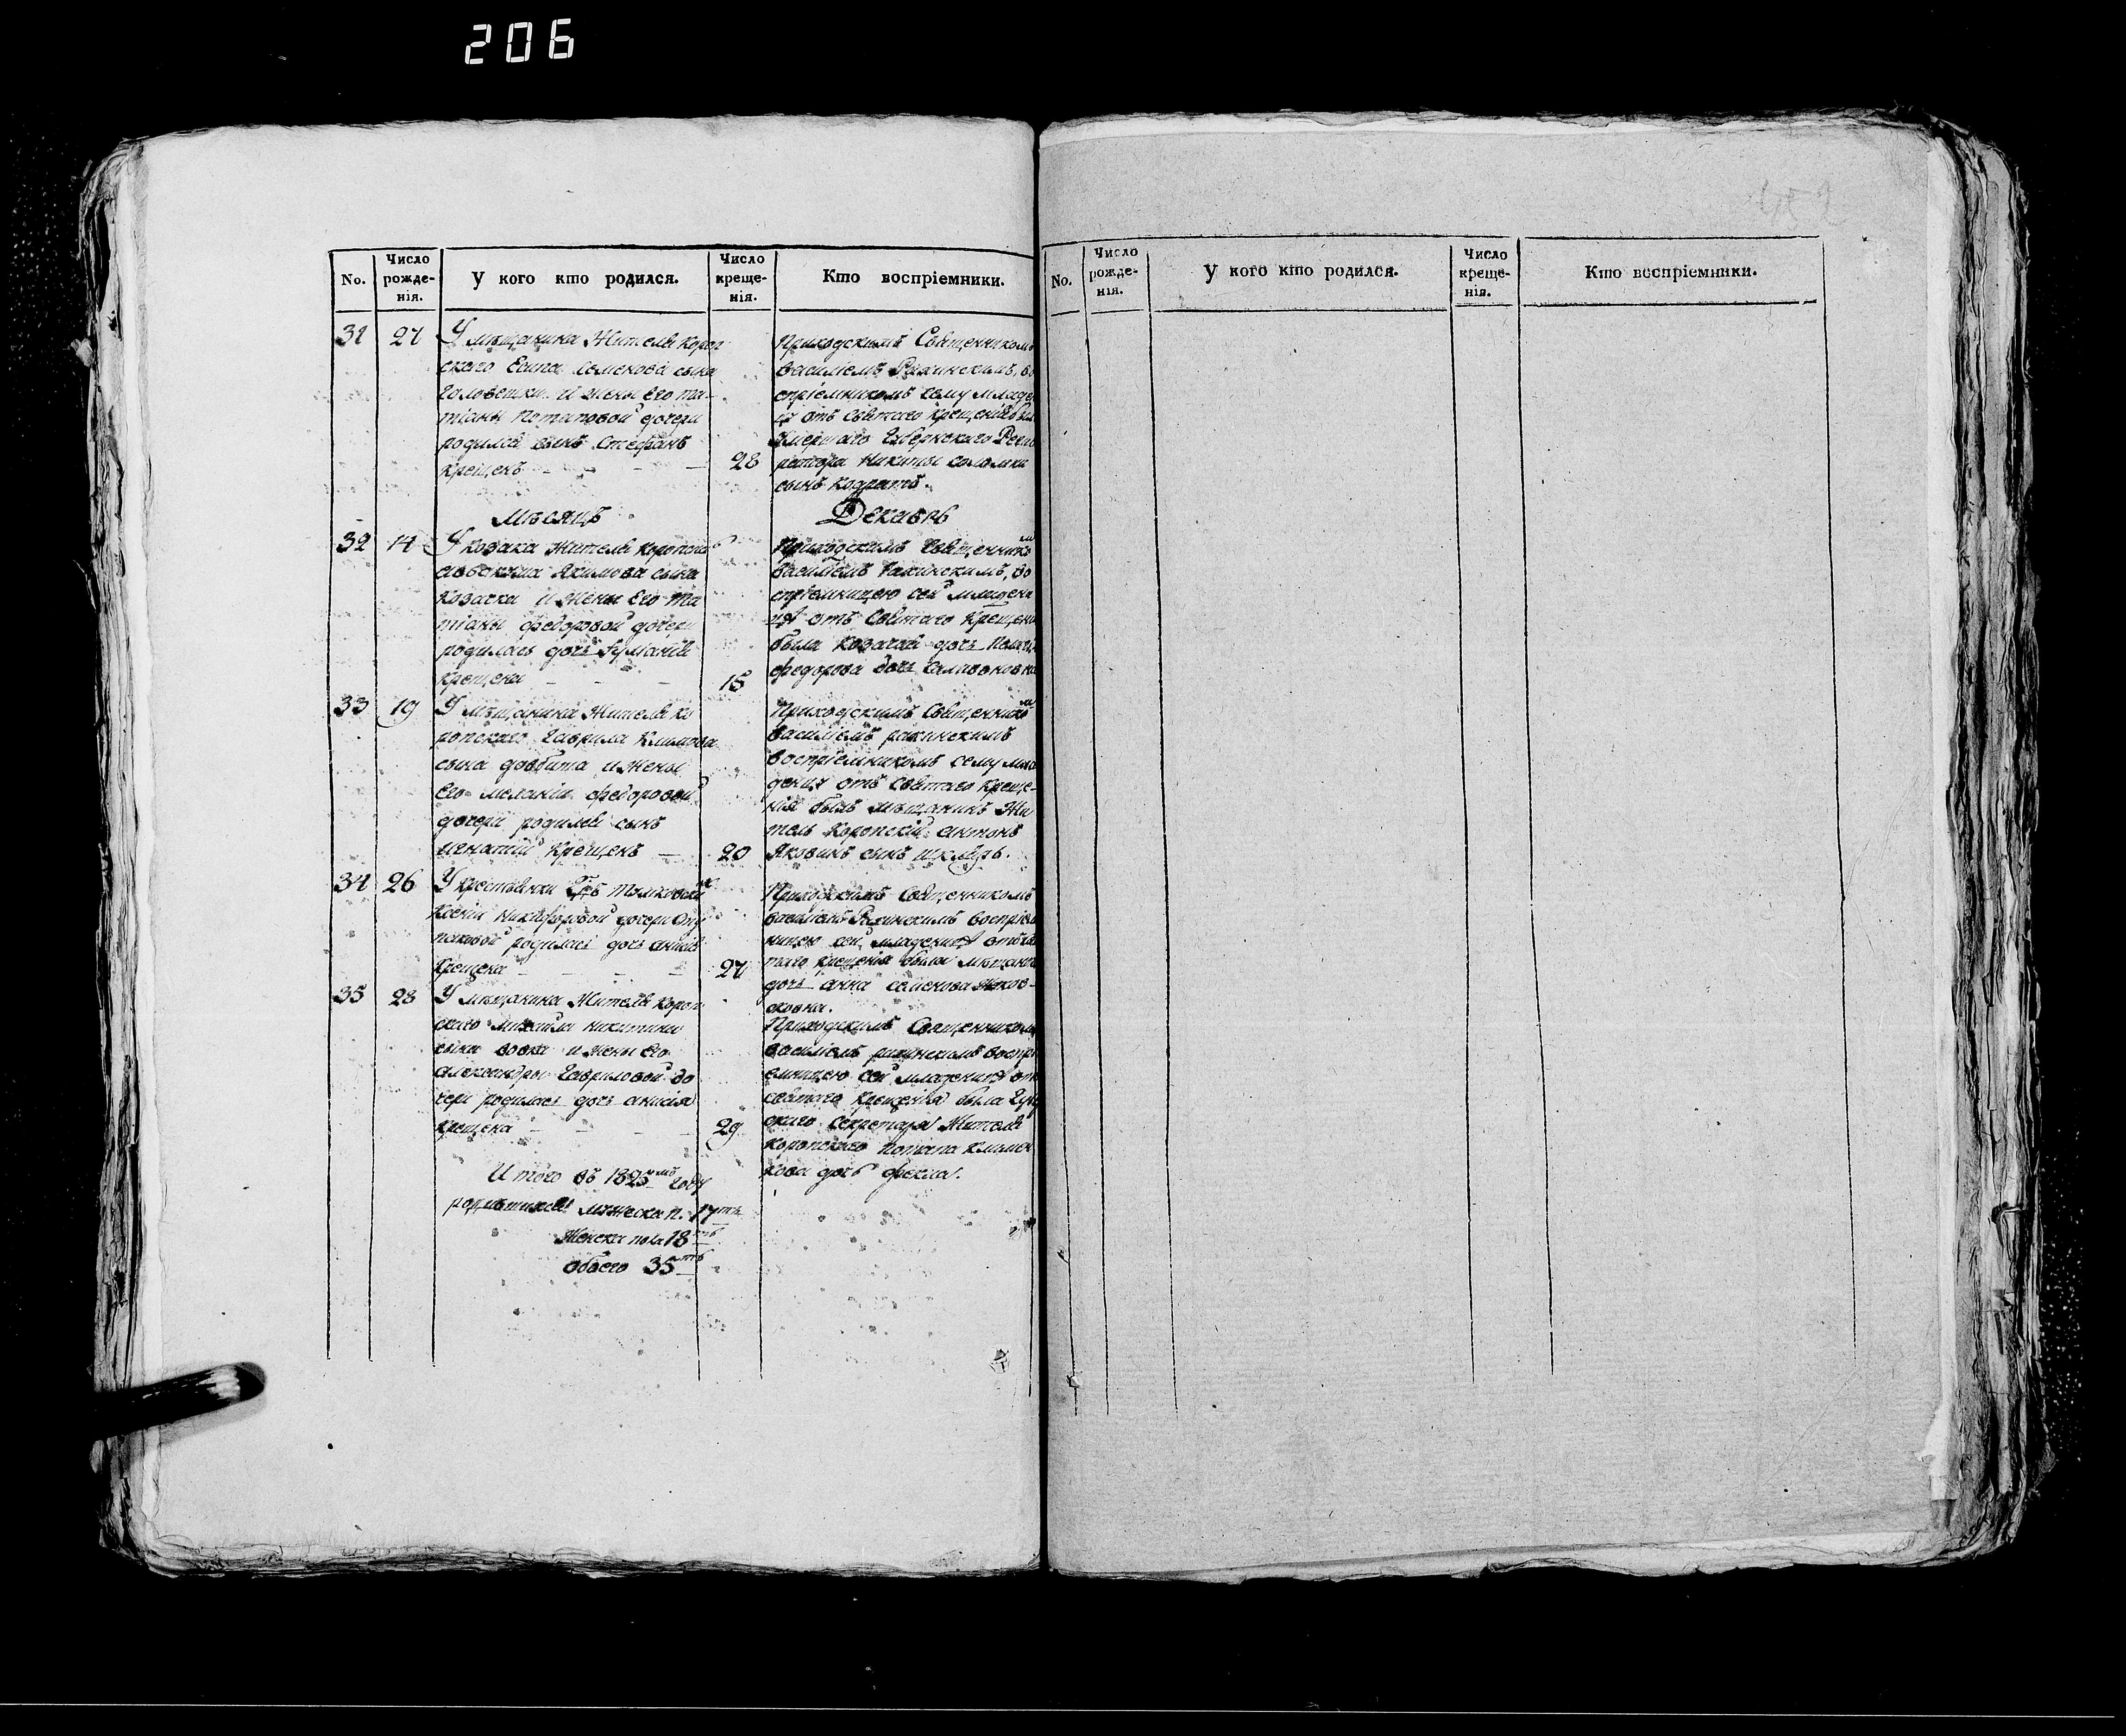 206
No.
Число рожде-нія.
У кого кто родился.
Число креще-нія.
Кто воспріемники.
31
27
У мѣщанина Жителя Короп
скаго Есипа Семенова сына
Головешки и жены его Та-
тіаны Потаповой дочери
родился сынъ Стефанъ
крещенъ
28
Приходскимъ Священникомъ
Василіемъ Рахинскимъ, во
спріемникомъ сему младен
ца отъ Святаго Крещенія былъ
Умершаго Губернскаго Реги
ратора Никиты
сынъ Кодратъ.
Мѣсяцъ
Декабрь
32
14
У козака Жителя Коропска
Якимова сына
Козачка и жены Его Та
тіаны Федоровой дочери
родилась дочь
крещена
15
Приходскимъ Священнико м
Василіемъ Рахинскимъ, во
спріемницею сей младен
ца отъ Святаго Крещен
была Козачая дочь
Федорова дочь
33
19
У мѣщанина Жителя Ко
ропскаго Гаврила Климова
сына Довбита и жены
Его Меланіи Федоровой
дочери родился сынъ
Игнатій Крещенъ
20
Приходскимъ Священнико м
Василіемъ Рахинскимъ
воспріемникомъ сему мла
денца отъ Святаго Креще-
нія былъ мѣщанинъ Жи
тель Коропскій Антонъ
сынъ
34
26
У крестьянки
Ксеніи Никифоровой дочери
родилась дочь Анисія
Крещена
27
Приходскимъ Священникомъ
Василіемъ Рахинскимъ воспріем
ницею сей младенца отъ Свя
таго Крещенія была мѣщанина
дочь Анна Семенова
35
28
У мѣщанина Жителя Короп
скаго Михайла Никитина
сына Вовка и жены Его
Александры Гавриловой до
чери родилась дочь Анисія
крещена
29
Приходскимъ Священникомъ
Василіемъ Рахинскимъ воспрі
емницею сей младенца отъ
святаго Крещенія была Гу
скаго Секретаря Жителя
Коропскаго Потапа Климен
кова дочь Фекла.
Итого въ 1825 мъ году
родившихся мужеска п. 17 ть
Женска пола 18 ть
обоего 35 ть
No.
Число рожде-нія.
У кого кто родился.
Число креще-нія.
Кто воспріемники.